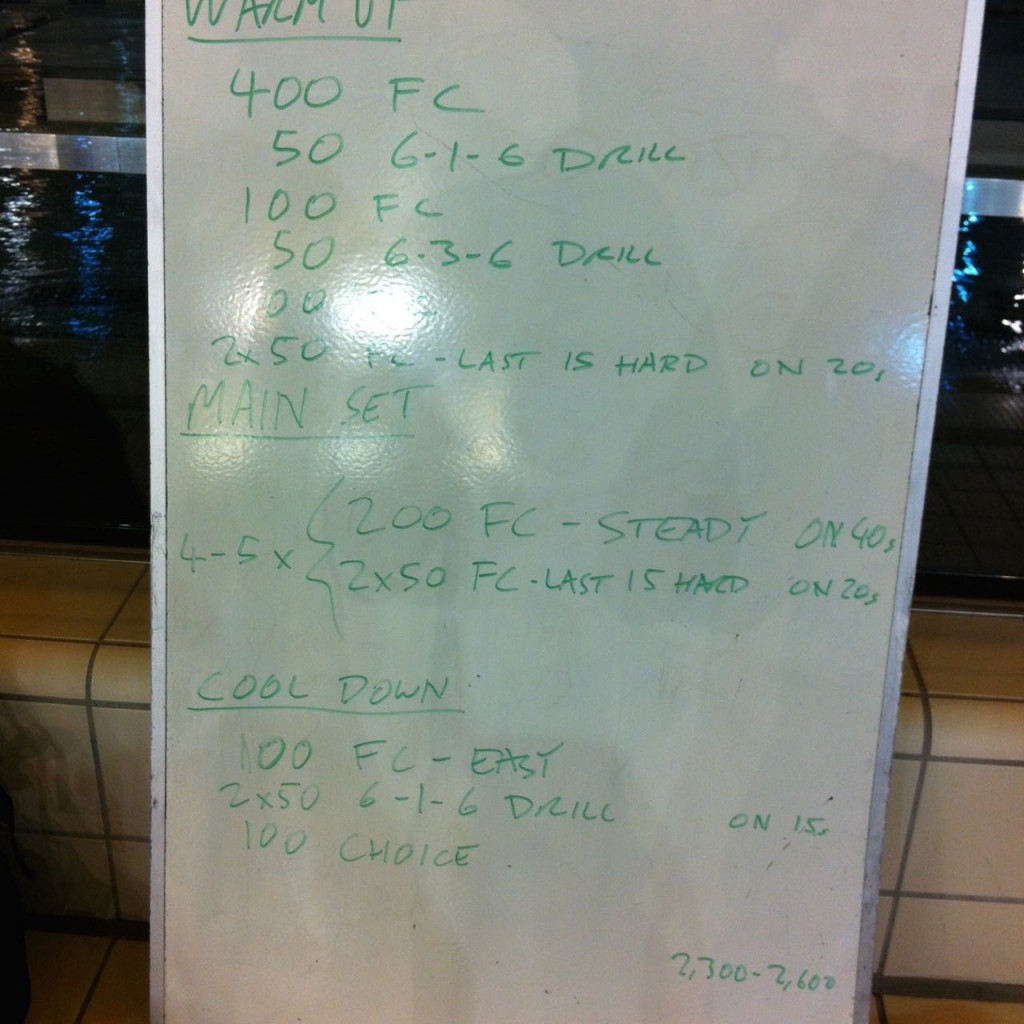 WARM UP
400 FC
50 6-1-6 DRILL
100 FC
50 6-3-6 DRILL
00
2x50 FC - LAST 15 HARD ON 20s
MAIN SET
4-5 x { 200 FC - STEADY ON 40s
2x50 FC - LAST 15 HARD ON 20s
COOL DOWN
100 FC - EASY
2x50 6-1-6 DRILL ON 15s
100 CHOICE
2,300-2,600